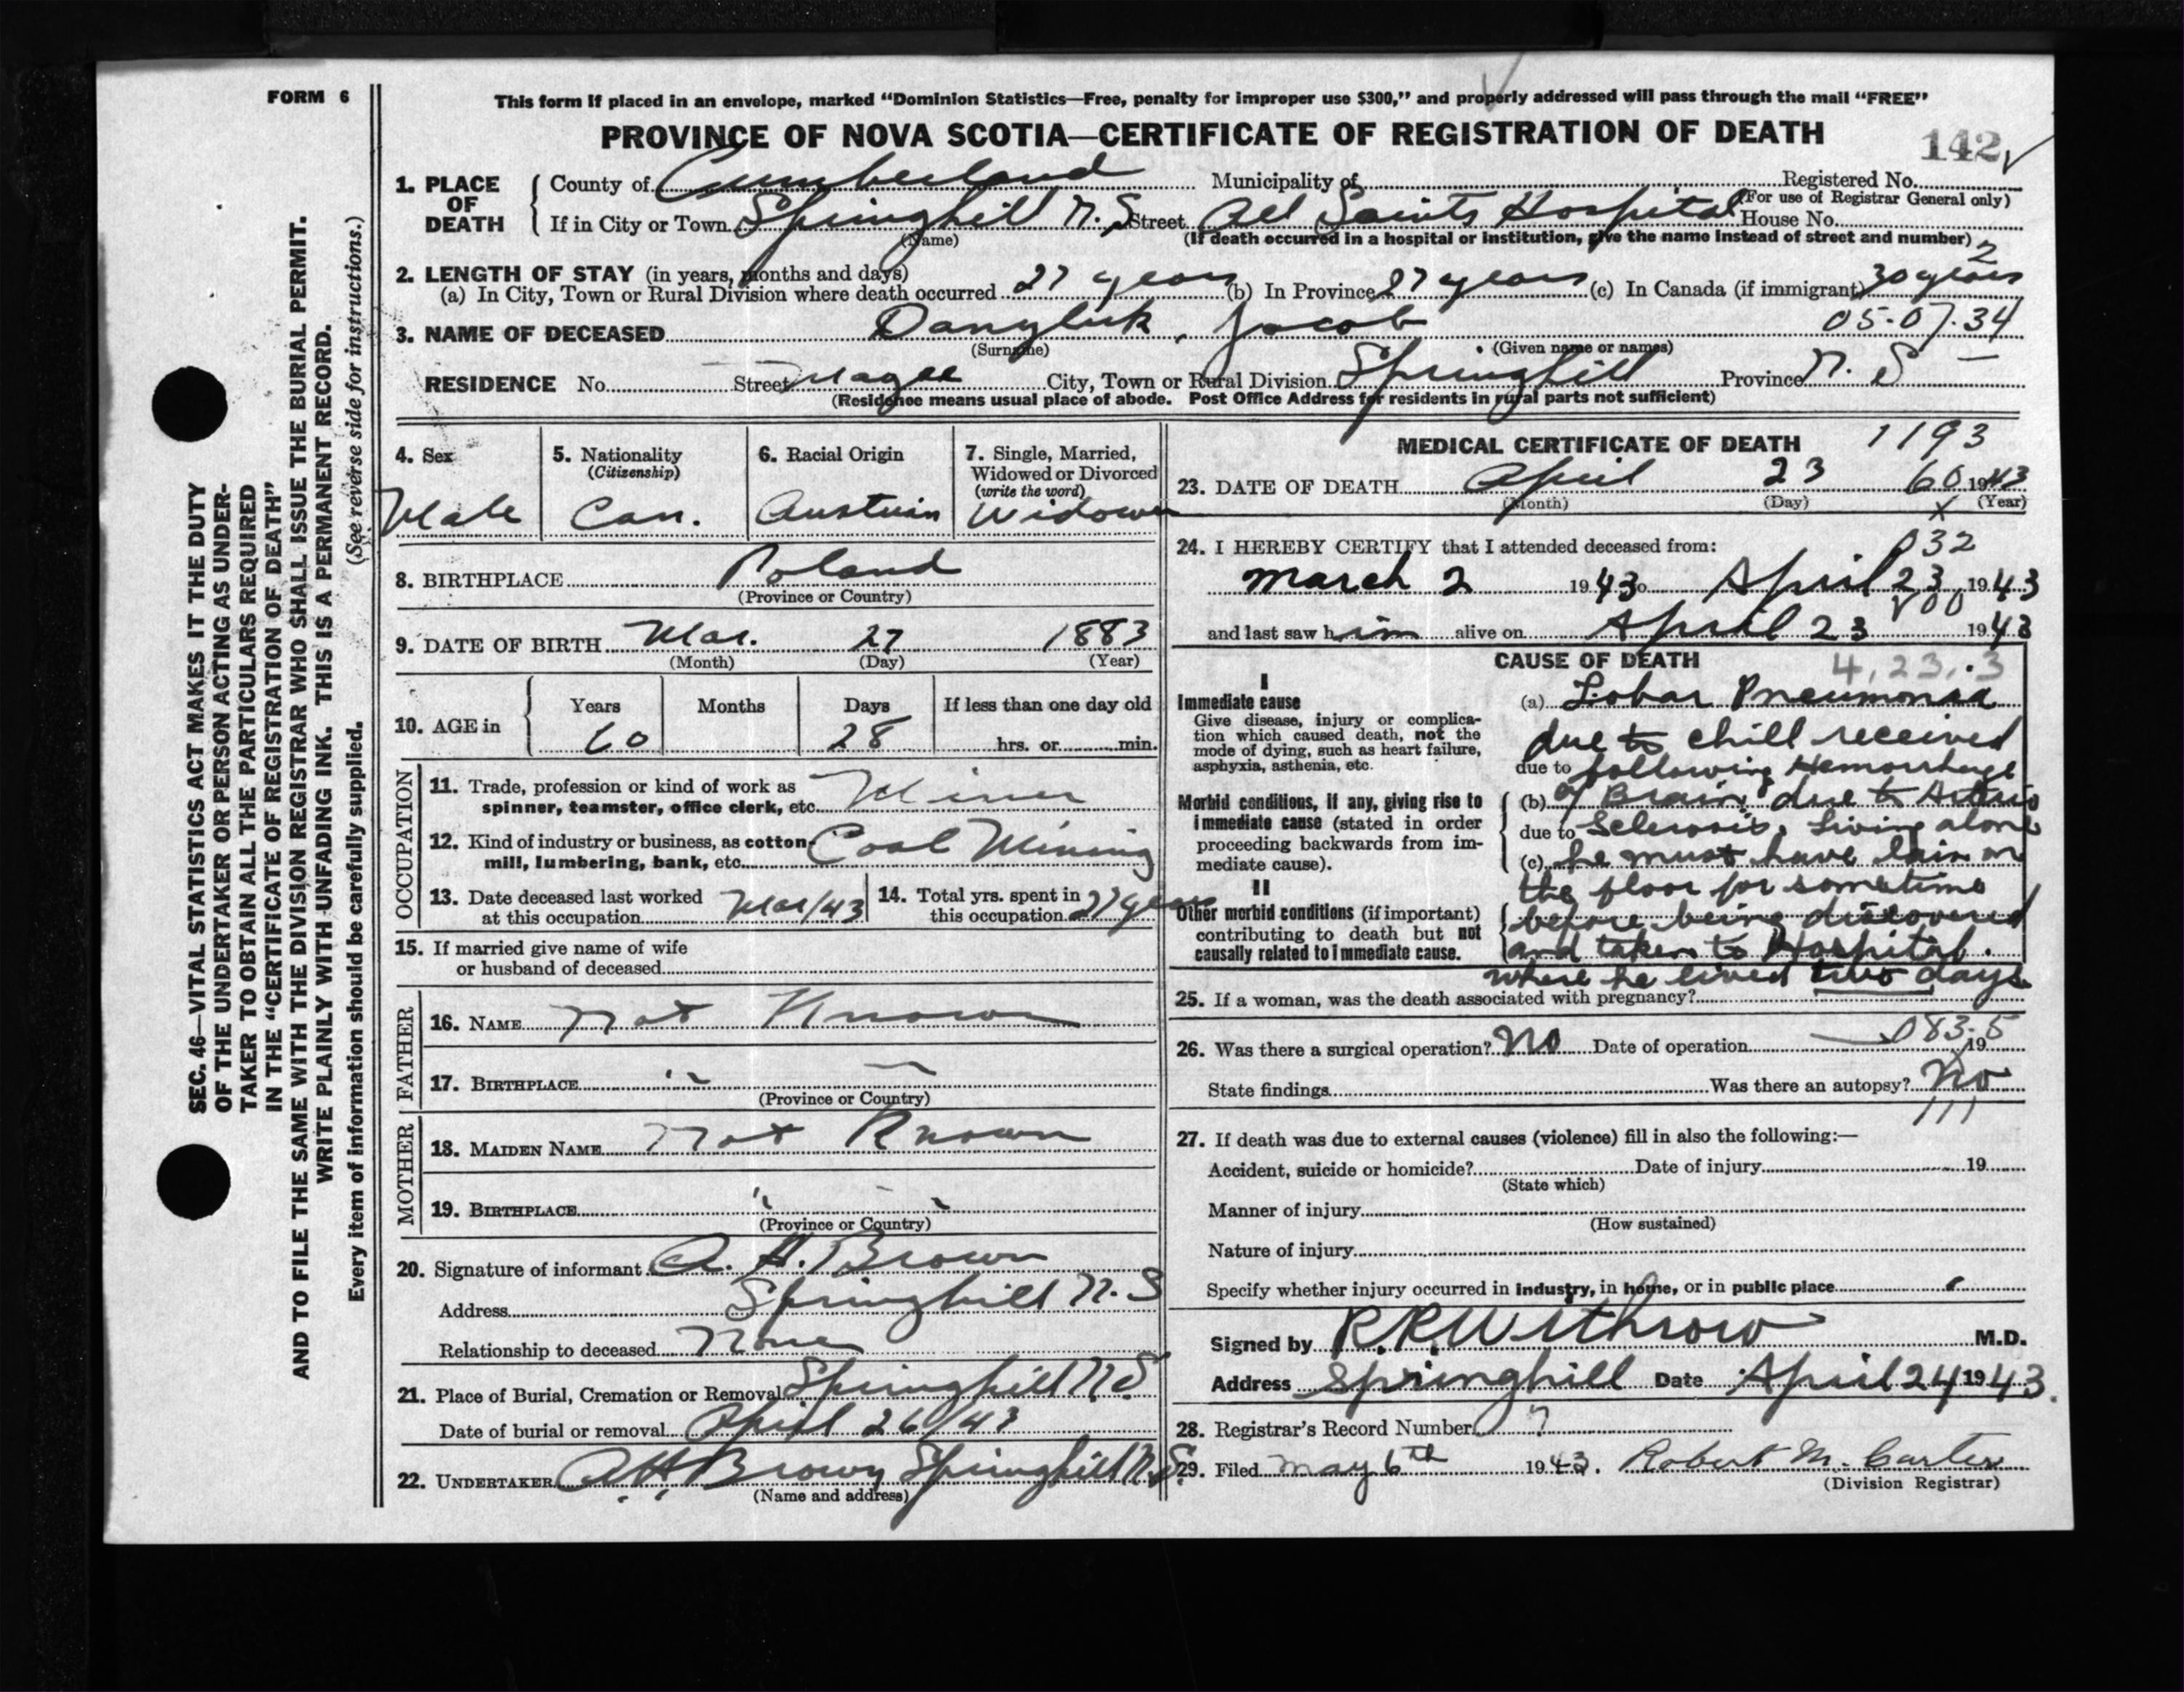 FORM 6
This form if placed in an envelope, marked “Dominion Statistics—Free, penalty for improper use $300,” and properly addressed will pass through the mail “FREE”
PROVINCE OF NOVA SCOTIA—CERTIFICATE OF REGISTRATION OF DEATH
142
1. PLACE OF DEATH
County of Cumberland Municipality of Registered No.
(For use of Registrar General only)
If in City or Town Springhill N.S Street All Saints Hospital House No.
(Name) (If death occurred in a hospital or institution, give the name instead of street and number)
2
2. LENGTH OF STAY (in years, months and days)
(a) In City, Town or Rural Division where death occurred 27 years (b) In Province 27 years (c) In Canada (if immigrant) 30 years
3. NAME OF DECEASED Danyluk, Jacob 05-07-34
(Surname) (Given name or names)
RESIDENCE No. Street Magee City, Town or Rural Division Springhill Province N. S
(Residence means usual place of abode. Post Office Address for residents in rural parts not sufficient)
4. Sex
Male
5. Nationality
(Citizenship)
Can.
6. Racial Origin
Austrian
7. Single, Married,
Widowed or Divorced
(write the word)
Widower
8. BIRTHPLACE Poland
(Province or Country)
9. DATE OF BIRTH Mar. 27 1883
(Month) (Day) (Year)
10. AGE in
Years Months Days If less than one day old
60 28 hrs. or min.
OCCUPATION
11. Trade, profession or kind of work as
spinner, teamster, office clerk, etc. Miner
12. Kind of industry or business, as cotton
mill, lumbering, bank, etc. Coal Mining
13. Date deceased last worked
at this occupation Mar/43
14. Total yrs. spent in
this occupation 27 years
15. If married give name of wife
or husband of deceased
FATHER
16. NAME Not Known
17. BIRTHPLACE " "
(Province or Country)
MOTHER
18. MAIDEN NAME Not Known
19. BIRTHPLACE " "
(Province or Country)
20. Signature of informant A. H. Brown
Address Springhill N.S
Relationship to deceased None
21. Place of Burial, Cremation or Removal Springhill N.S.
Date of burial or removal April 26/43
22. UNDERTAKER A.H. Brown Springhill N.S.
(Name and address)
MEDICAL CERTIFICATE OF DEATH 1193
23. DATE OF DEATH April 23 60 1943
(Month) (Day) (Year)
x
24. I HEREBY CERTIFY that I attended deceased from:
032
March 2 1943 to April 23 1943
and last saw him alive on April 23 1943
CAUSE OF DEATH
I
Immediate cause
Give disease, injury or complica-
tion which caused death, not the
mode of dying, such as heart failure,
asphyxia, asthenia, etc.
Morbid conditions, if any, giving rise to
immediate cause (stated in order
proceeding backwards from im-
mediate cause).
II
Other morbid conditions (if important)
contributing to death but not
causally related to immediate cause.
(a) Lobar Pneumonia
due to chill received
due to following Hemorrhage
(b) of Brain due to Arterio
due to Sclerosis. Living alone
(c) he must have lain on
the floor for sometime
before being discovered
and taken to Hospital.
where he lived two days
25. If a woman, was the death associated with pregnancy?
083-5
26. Was there a surgical operation? No Date of operation 19
State findings Was there an autopsy? No
111
27. If death was due to external causes (violence) fill in also the following:—
Accident, suicide or homicide? Date of injury 19
(State which)
Manner of injury
(How sustained)
Nature of injury
Specify whether injury occurred in industry, in home, or in public place
Signed by R.R. Withrow M.D.
Address Springhill Date April 24 1943.
28. Registrar's Record Number 7
29. Filed May 6th 1943. Robert M. Carter
(Division Registrar)
SEC. 46—VITAL STATISTICS ACT MAKES IT THE DUTY
OF THE UNDERTAKER OR PERSON ACTING AS UNDER-
TAKER TO OBTAIN ALL THE PARTICULARS REQUIRED
IN THE “CERTIFICATE OF REGISTRATION OF DEATH”
AND TO FILE THE SAME WITH THE DIVISION REGISTRAR WHO SHALL ISSUE THE BURIAL PERMIT.
WRITE PLAINLY WITH UNFADING INK. THIS IS A PERMANENT RECORD.
Every item of information should be carefully supplied. (See reverse side for instructions.)